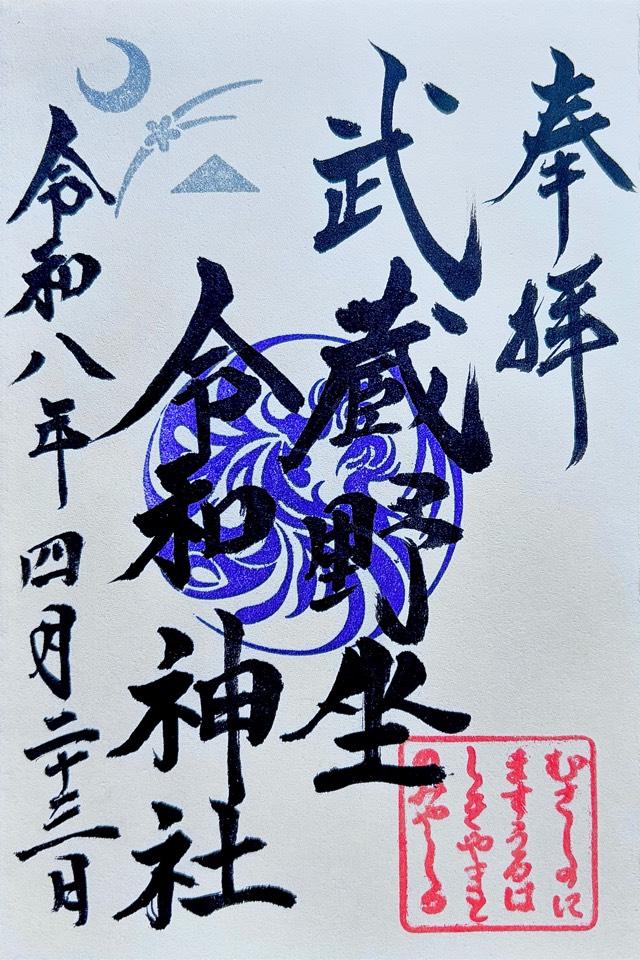 奉拝
武蔵野坐
令和神社
令和八年四月二十三日
むさしのに
ますうるは
しきやまと
のみやしろ